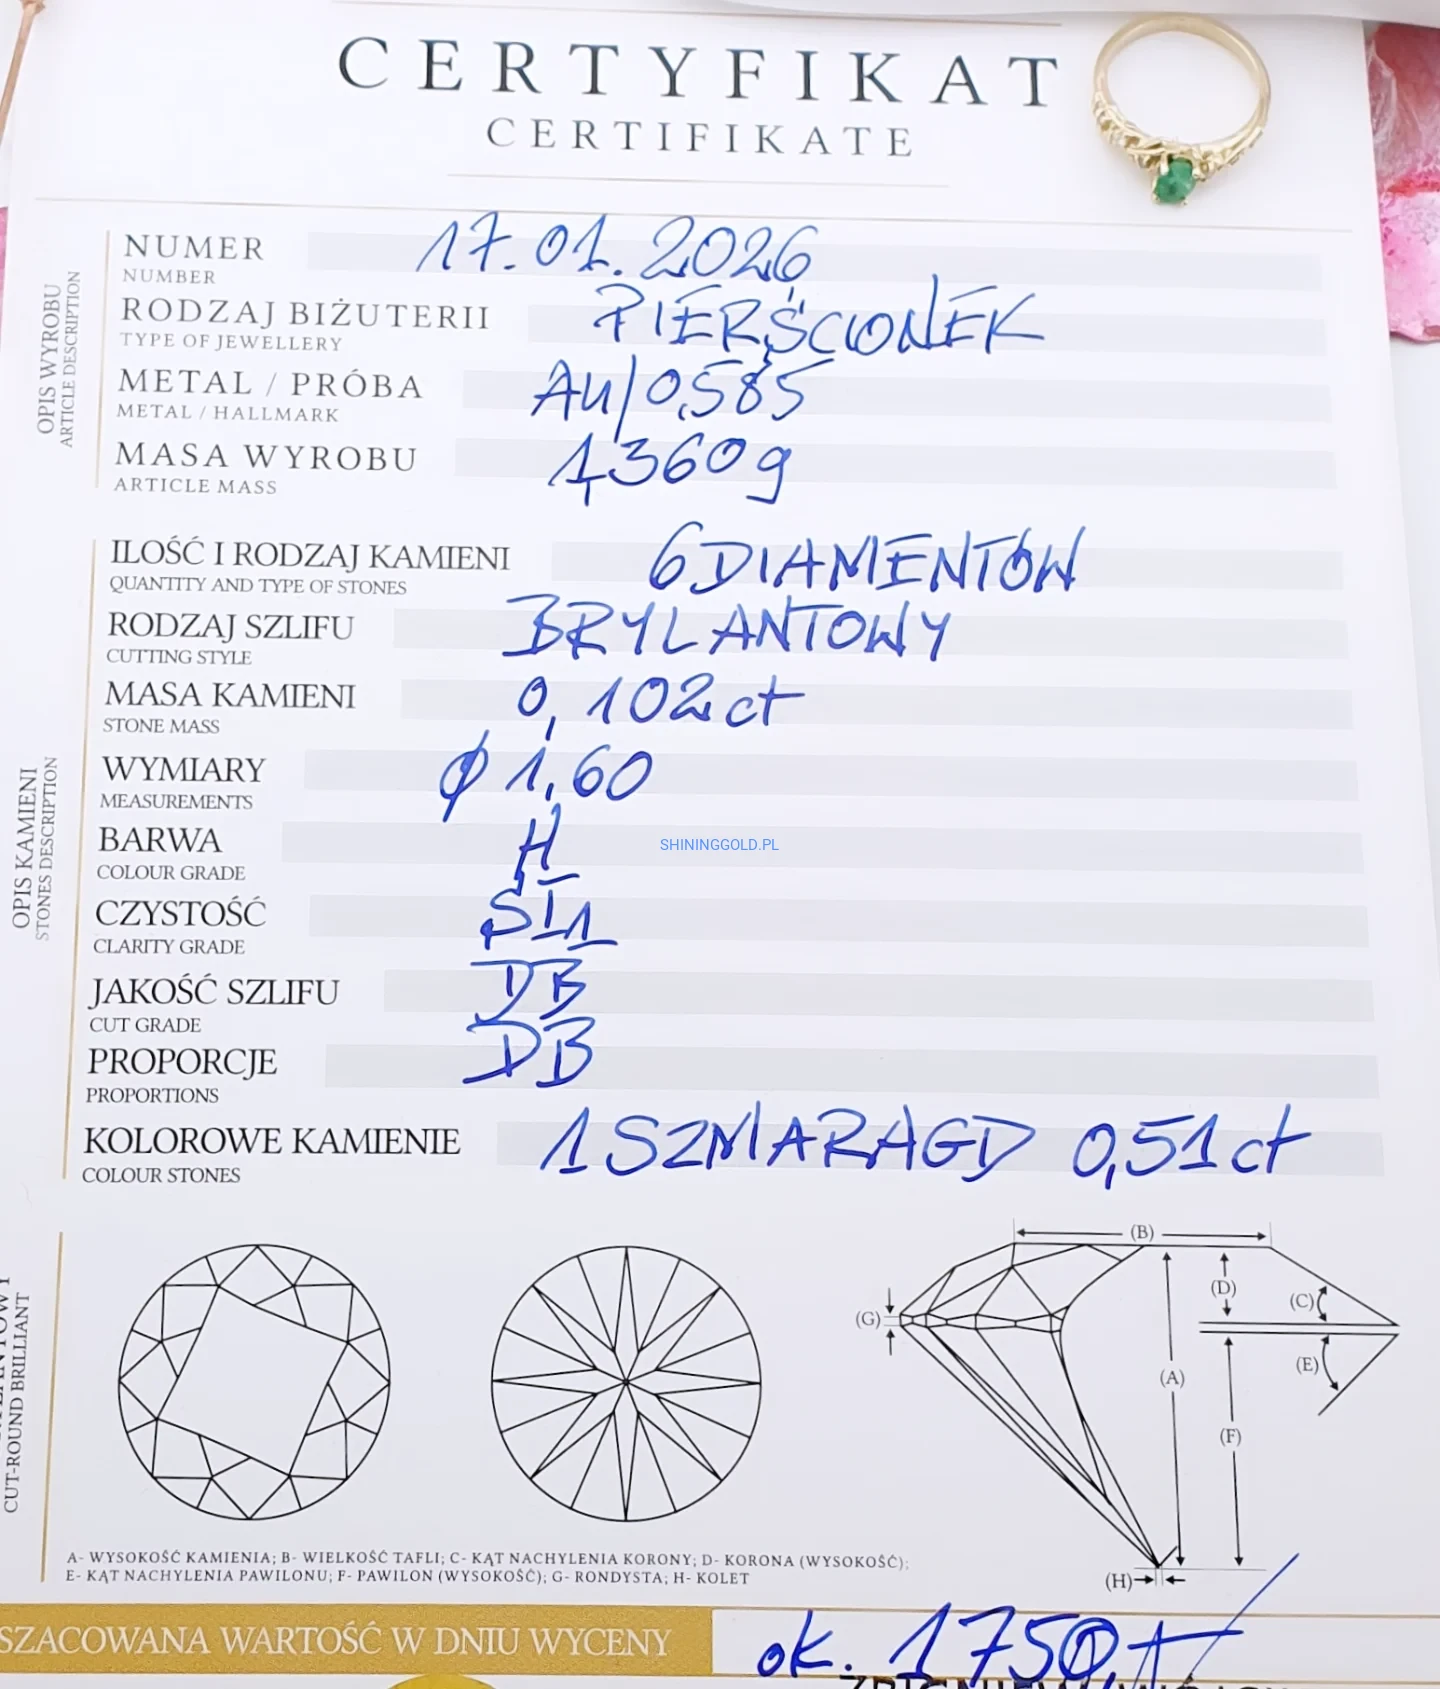 CERTYFIKAT
CERTIFIKATE
OPIS WYROBU
ARTICLE DESCRIPTION
NUMER 17.01.2026
NUMBER
RODZAJ BIŻUTERII PIERŚCIONEK
TYPE OF JEWELLERY
METAL / PRÓBA Au/0,585
METAL / HALLMARK
MASA WYROBU 1,360g
ARTICLE MASS
OPIS KAMIENI
STONES DESCRIPTION
ILOŚĆ I RODZAJ KAMIENI 6 DIAMENTÓW
QUANTITY AND TYPE OF STONES
RODZAJ SZLIFU BRYLANTOWY
CUTTING STYLE
MASA KAMIENI 0,102ct
STONE MASS
WYMIARY ϕ 1,60
MEASUREMENTS
BARWA H
COLOUR GRADE
SHININGGOLD.PL
CZYSTOŚĆ SI1
CLARITY GRADE
JAKOŚĆ SZLIFU DB
CUT GRADE
PROPORCJE DB
PROPORTIONS
KOLOROWE KAMIENIE 1 SZMARAGD 0,51ct
COLOUR STONES
CUT-ROUND BRILLIANT
(B)
(D)
(C)
(G)
(E)
(A)
(F)
(H)
A- WYSOKOŚĆ KAMIENIA; B- WIELKOŚĆ TAFLI; C- KĄT NACHYLENIA KORONY; D- KORONA (WYSOKOŚĆ);
E- KĄT NACHYLENIA PAWILONU; F- PAWILON (WYSOKOŚĆ); G- RONDYSTA; H- KOLET
SZACOWANA WARTOŚĆ W DNIU WYCENY ok. 1750,-